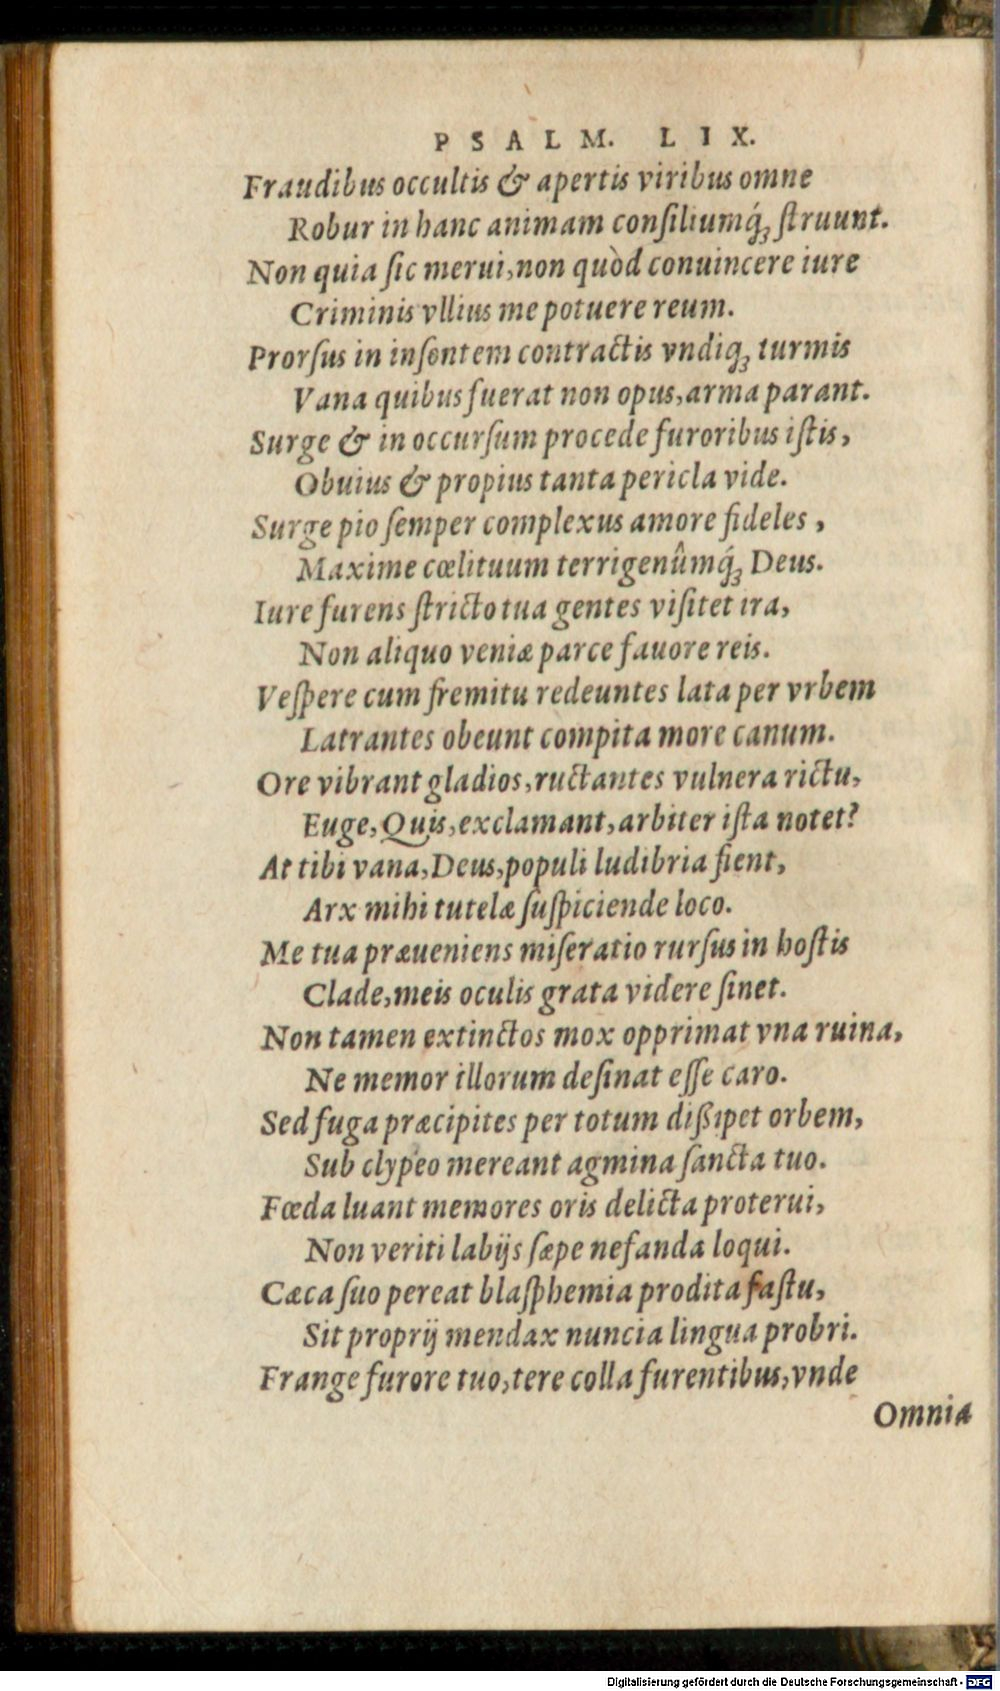 PSALM. LIX.
Fraudibus occultis & apertis viribus omne
Robur in hanc animam conſiliumq́ꝫ ſtruunt.
Non quia ſic merui, non quòd conuincere iure
Criminis vllius me potuere reum.
Prorſus in inſontem contractis vndiqꝫ turmis
Vana quibus fuerat non opus, arma parant.
Surge & in occurſum procede furoribus iſtis,
Obuius & propius tanta pericla vide.
Surge pio ſemper complexus amore fideles,
Maxime cœlituum terrigenûmq́ꝫ Deus.
Iure furens ſtricto tua gentes viſitet ira,
Non aliquo veniæ parce fauore reis.
Veſpere cum fremitu redeuntes lata per vrbem
Latrantes obeunt compita more canum.
Ore vibrant gladios, ructantes vulnera rictu,
Euge, Quis, exclamant, arbiter iſta notet?
At tibi vana, Deus, populi ludibria fient,
Arx mihi tutelæ ſuſpiciende loco.
Me tua præueniens miſeratio rurſus in hoſtis
Clade, meis oculis grata videre ſinet.
Non tamen extinctos mox opprimat vna ruina,
Ne memor illorum deſinat eſſe caro.
Sed fuga præcipites per totum diſſipet orbem,
Sub clypeo mereant agmina ſancta tuo.
Fœda luant memores oris delicta proterui,
Non veriti labijs ſæpe nefanda loqui.
Cæca ſuo pereat blaſphemia prodita faſtu,
Sit proprij mendax nuncia lingua probri.
Frange furore tuo, tere colla furentibus, vnde
Omnia
Digitalisierung gefördert durch die Deutsche Forschungsgemeinschaft - DFG